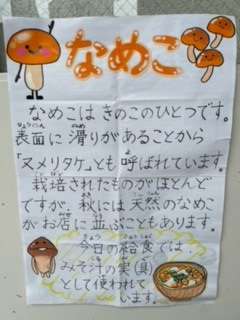 なめこ
なめこは きのこのひとつです。
表面に 滑りがあることから
「ヌメリタケ」とも 呼ばれています。
栽培されたものがほとんど
ですが、秋には 天然のなめこ
が お店に 並ぶこともあります。
今日の給食では
みそ汁の実(具)
として使われて
います。